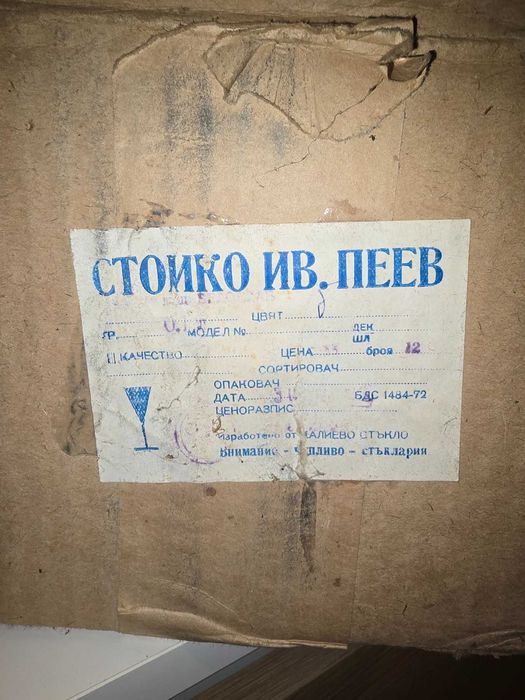 СТОИКО ИВ. ПЕЕВ
ЦВЯТ
ГР. МОДЕЛ № ДЕК
ШЛ
II КАЧЕСТВО ЦЕНА броя 12
СОРТИРОВАЧ
ОПАКОВАЧ
ДАТА БДС 1484-72
ЦЕНОРАЗПИС
изработено от КАЛИЕВО СТЪКЛО
Внимание - чупливо - стъклария